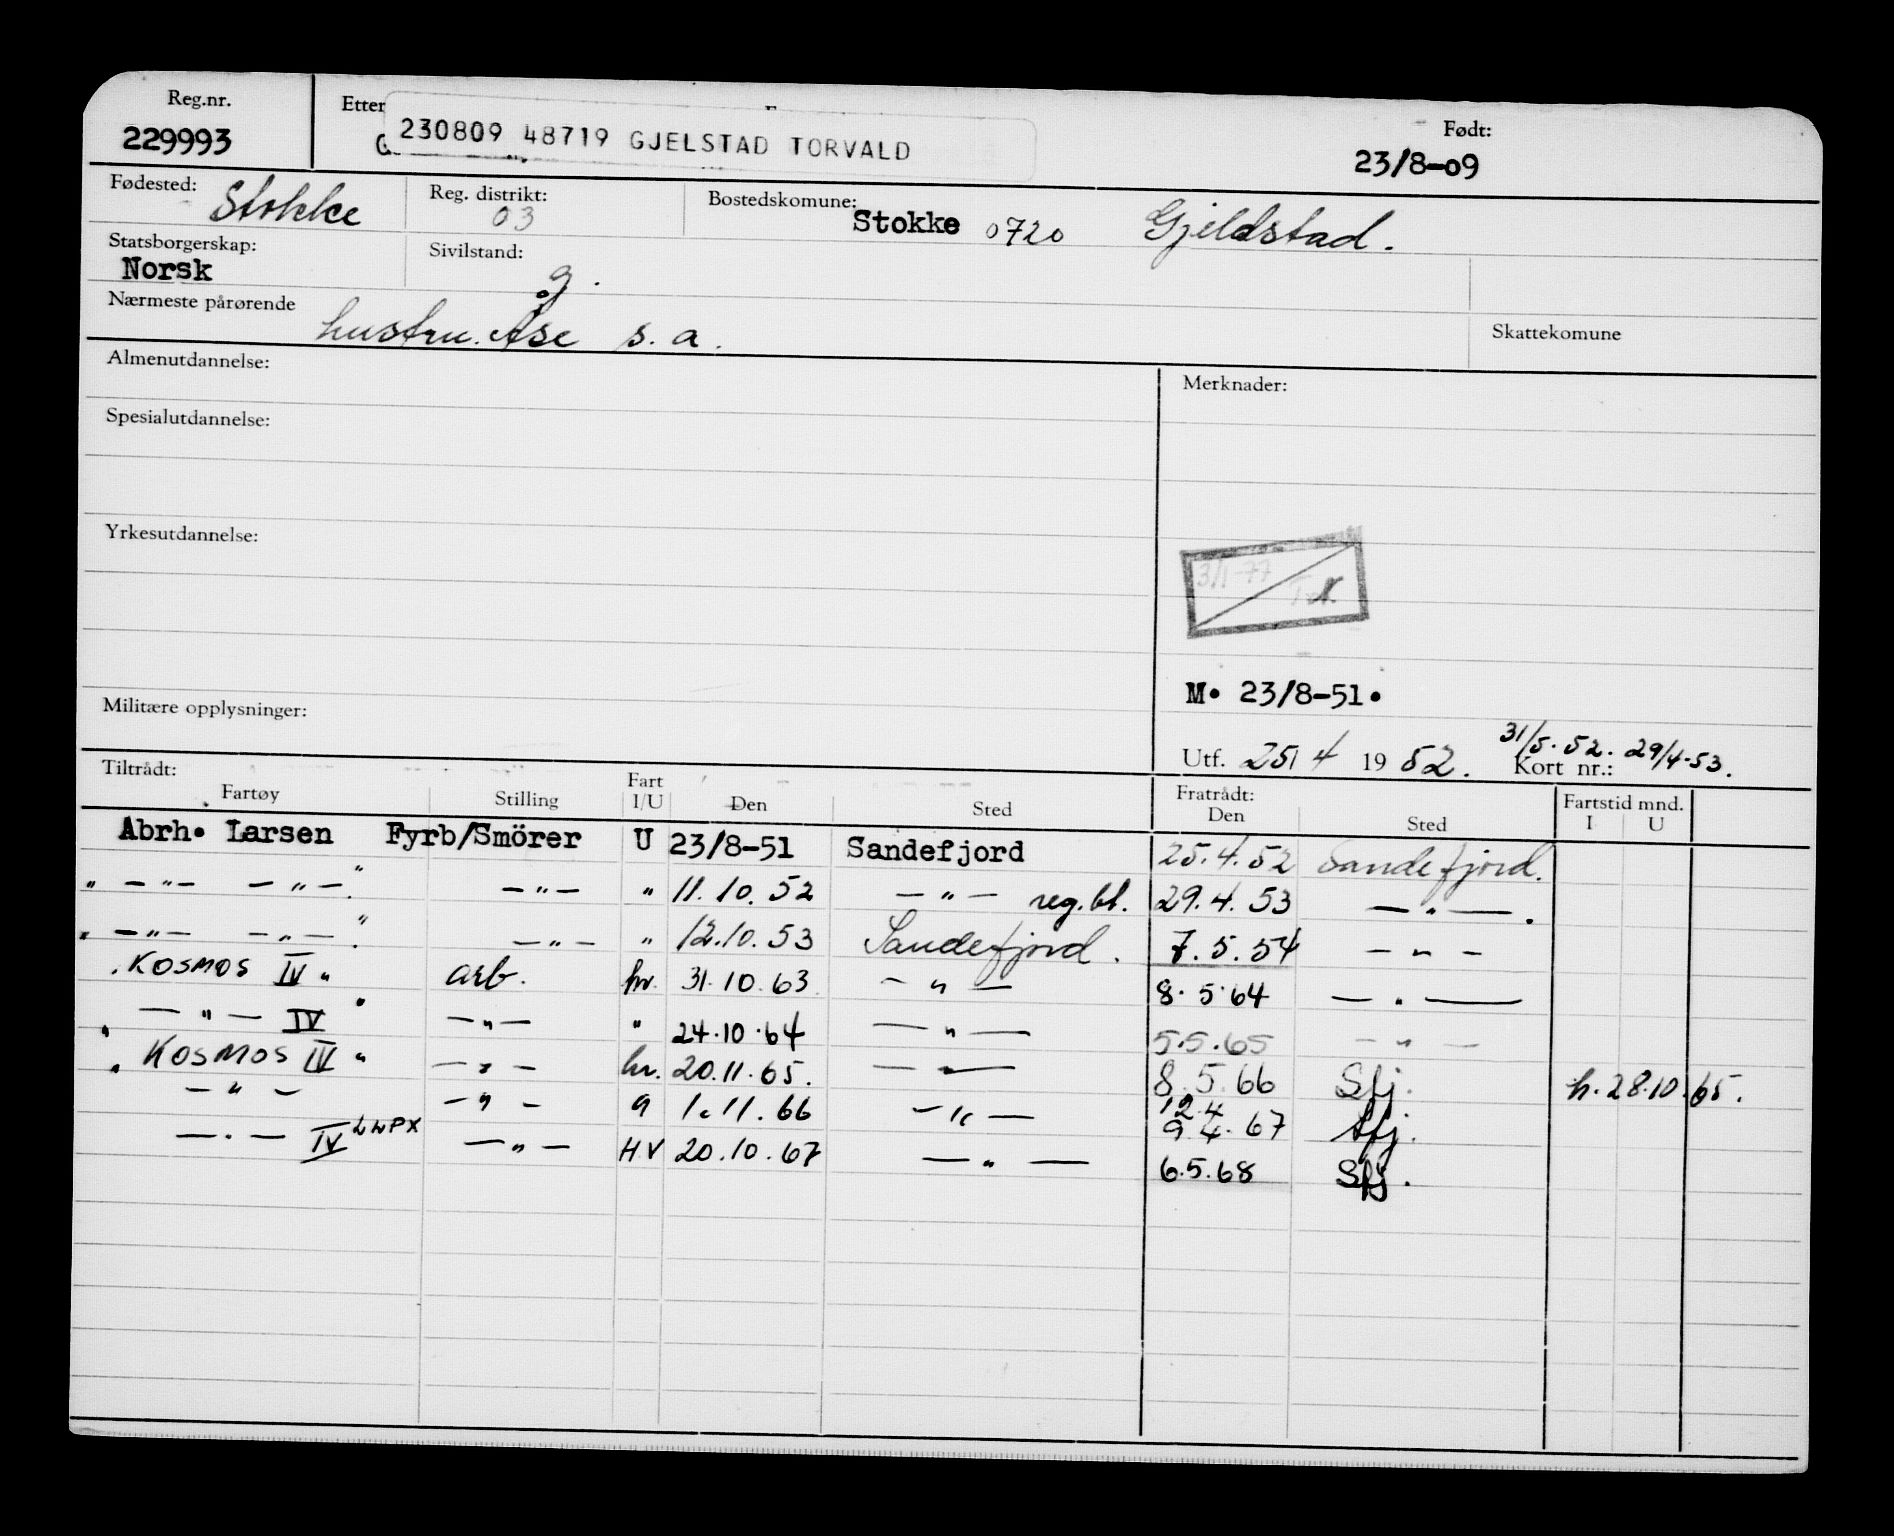 Reg.nr. Etter Født:
229993 230809 48719 GJELSTAD TORVALD 23/8-09
Fødested: Stokke Reg. distrikt: 03 Bostedskomune: Stokke 0720 Gjeldstad.
Statsborgerskap: Norsk Sivilstand: g.
Nærmeste pårørende hustru. Åse s. a. Skattekomune
Almenutdannelse: Merknader:
Spesialutdannelse:
Yrkesutdannelse:
3/1-77
M. 23/8-51.
Militære opplysninger:
31/5.52. 29/4-53.
Utf. 25/4 1952. Kort nr.:
Tiltrådt: Fratrådt: Fartstid mnd.
Fartøy Stilling Fart I/U Den Sted Den Sted I U
Abrh. Larsen Fyrb/Smörer U 23/8-51 Sandefjord 25.4.52 Sandefjord.
" —"— —"—" —"— " 11.10.52 —"— reg.bl. 29.4.53 —"—.
" —"— —"—" —"— " 12.10.53 Sandefjord. 7.5.54 —"—
"KOSMOS IV" arb. hv. 31.10.63 —"— 8.5.64 —"—
" —"— IV " —"— " 24.10.64 —"— 5.5.65 —"—
"KOSMOS IV" —"— hv. 20.11.65. —"— 8.5.66 Sfj. h.28.10.65.
—"— —"— " 1.11.66 —"— 12.4 9.4.67 Sfj.
—"— IV LNPX —"— HV 20.10.67 —"— 6.5.68 Sfj.